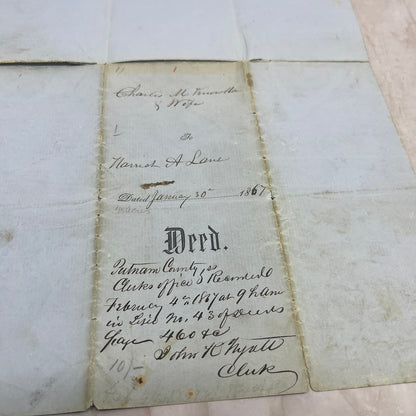 Charles M.
& Wife
To
Harriet A Lane
Dated January 30th 1867
Deed.
Putnam County, ss
Clerks office } Recorded
February 4th 1867 at 9 h am
in Liber No. 43 of deeds
page 460 &c
John K Wyatt
Clerk
10/-